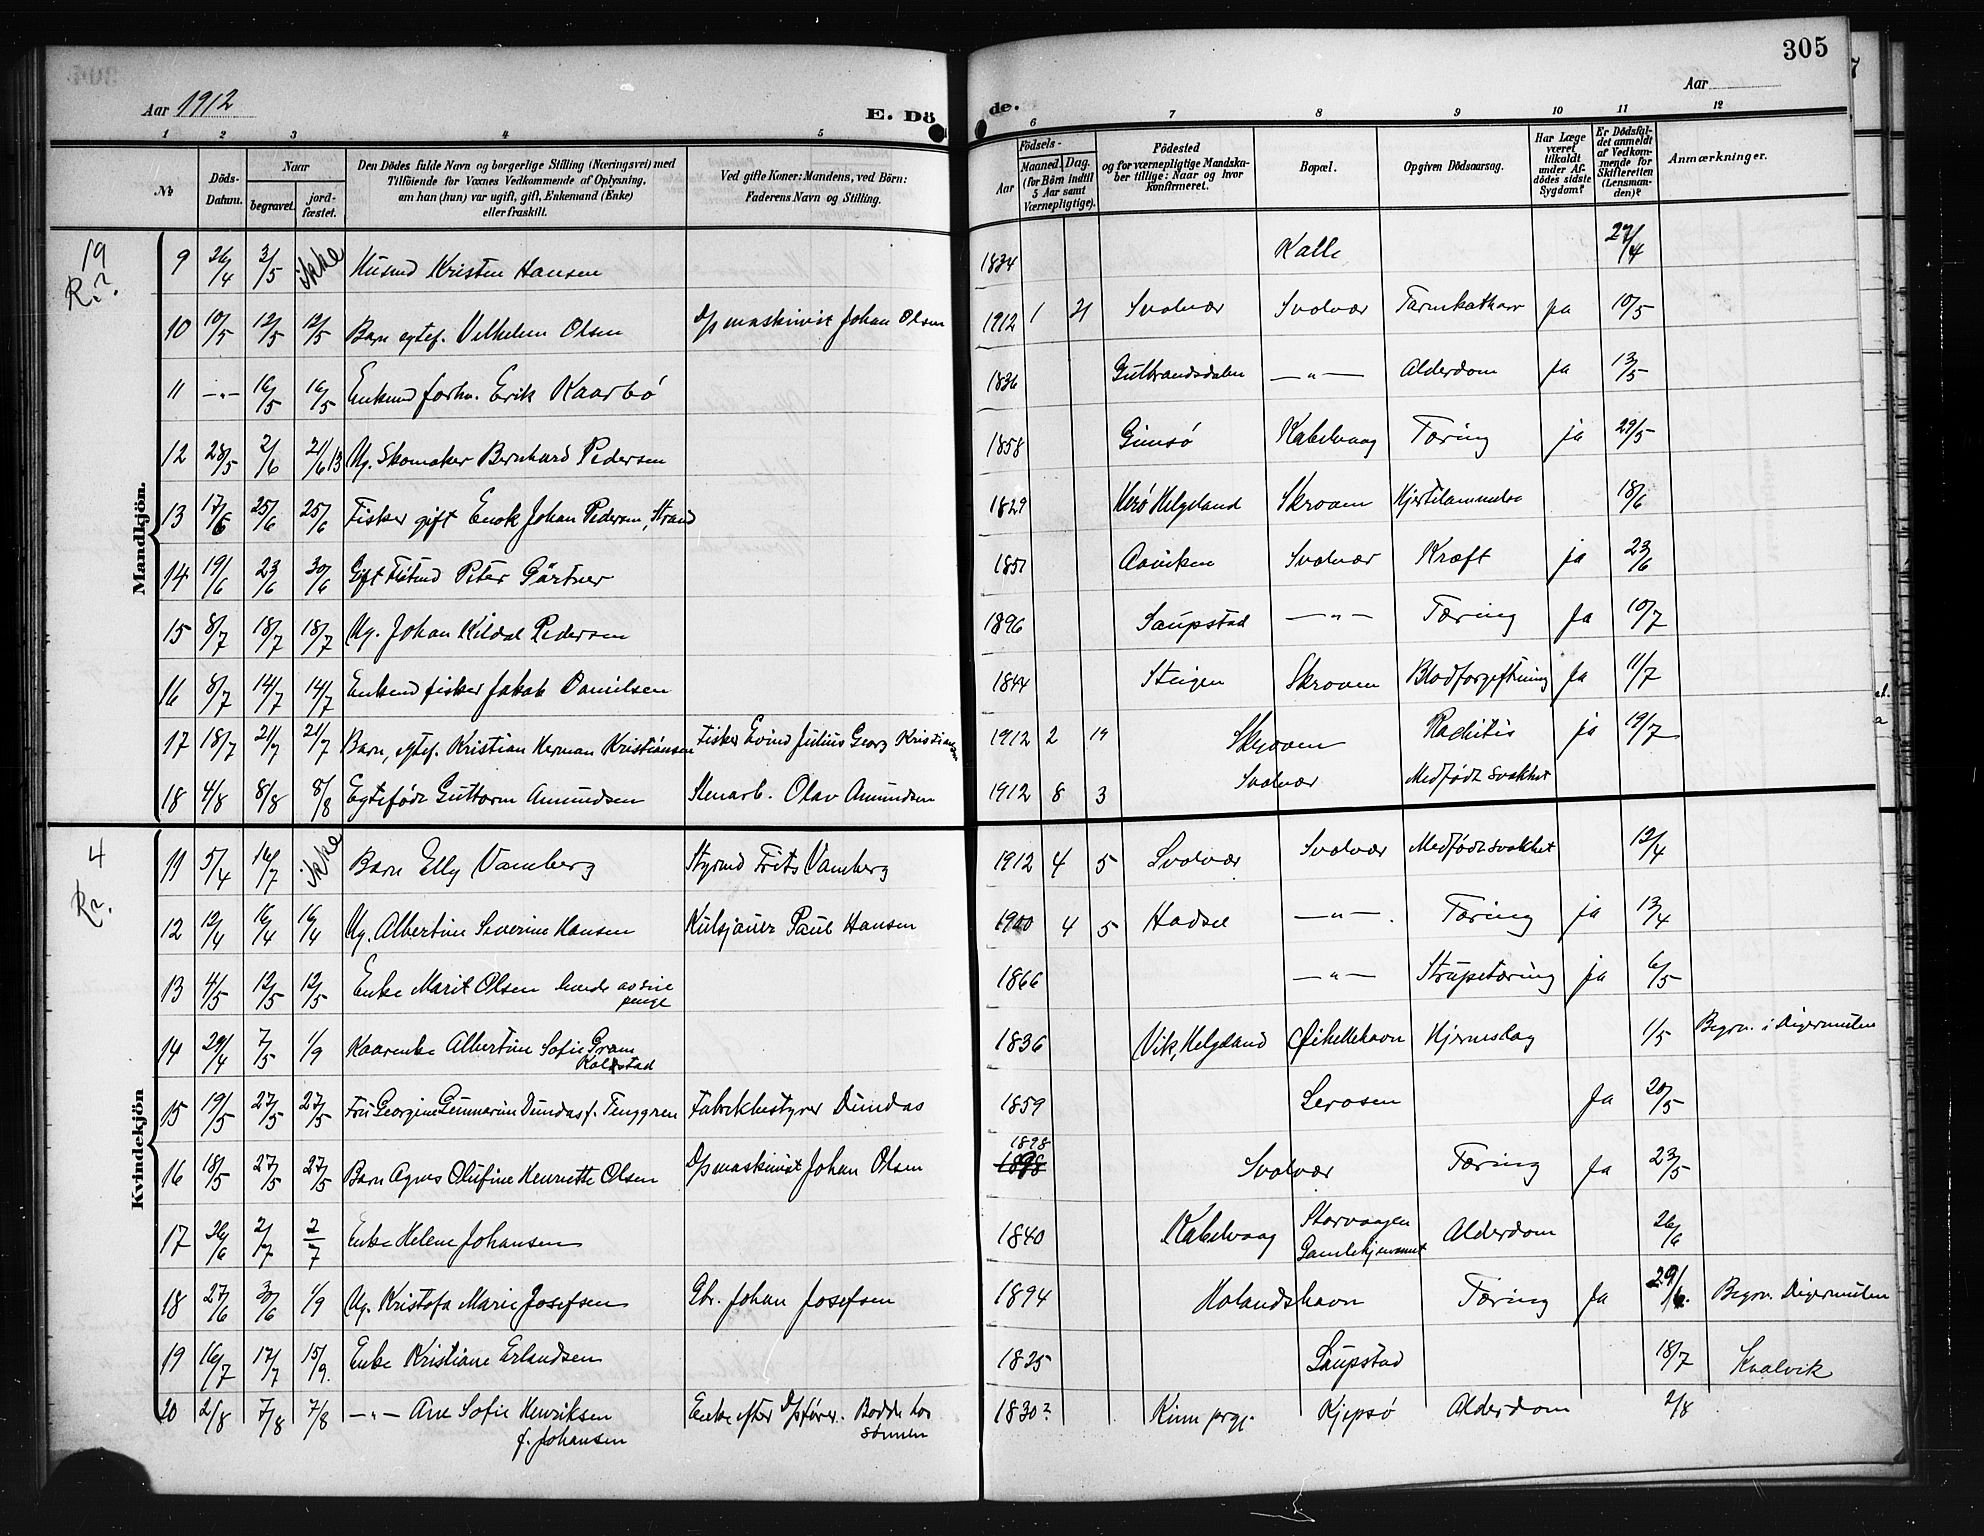 305
Aar 1912
E. Dö
de.
Aar
1 2 3 4 5 6 7 8 9 10 11 12
No
Döds-
Datum.
Naar
begravet.
jord-
fæstet.
Den Dödes fulde Navn og borgerlige Stilling (Næringsvei) med
Tilföiende for Voxnes Vedkommende af Oplysning,
om han (hun) var ugift, gift, Enkemand (Enke)
eller fraskilt.
Ved gifte Koner: Mandens, ved Börn:
Faderens Navn og Stilling.
Födsels-
Aar
Maaned. Dag.
(for Börn indtil
5 Aar samt
Værnepligtige).
Födested
og for værnepligtige Mandska-
ber tillige: Naar og hvor
konfirmeret.
Bopæl.
Opgiven Dödsaarsag.
Har Læge
været
tilkaldt
under Af-
dödes sidste
Sygdom?
Er Dödsfal-
det anmeldt
af Vedkom-
mende for
Skifteretten
(Lensman-
den)?
Anmærkninger.
19
Mandkjön.
9 26/4 3/5 ikke Husmd Kristen Hansen 1834 Kalle 27/4
10 10/5 12/5 12/5 Barn egtef. Vilhelm Olsen D/p maskinist Johan Olsen 1912 1 21 Svolvær Svolvær Tarmkatharr ja 10/5
11 -"- 16/5 16/5 Enkemd forhv. Erik Kaarbø 1836 Gulbrandsdalen -"- Alderdom ja 13/5
12 28/5 2/6 21/6 13 Ug. Skomaker Bernhard Pedersen 1858 Gimsø Kabelvaag Tæring ja 29/5
13 17/6 25/6 25/6 Fisker gift Enok Johan Pedersen, Strand 1829 Herø Helgeland Skroven Hjertelammelse 18/6
14 19/6 23/6 30/6 Gift Peter Gärtner 1851 Svolvær Kræft ja 23/6
15 8/7 18/7 18/7 Ug. Johan Kildal Pedersen 1896 Saupstad -"- Tæring Ja 10/7
16 8/7 14/7 14/7 Enkemd fisker Jakob Danielsen 1844 Steigen Skroven Blodforgiftning Ja 11/7
17 18/7 21/7 21/7 Barn, egtef. Kristian Herman Kristiansen Fisker Evind Julius Georg Kristiansen 1912 2 19 Skroven Rachitis ja 19/7
18 4/8 8/8 8/8 Egtefødt Guttorm Amundsen Stenarb. Olav Amundsen 1912 8 3 Svolvær Medfødt svakhet
4
Kvindekjön
11 5/4 16/7 ikke Barn Elly Vamberg Styrmd Frits Vamberg 1912 4 5 Svolvær Svolvær Medfødt svakhet 12/4
12 12/4 16/4 16/4 Ug. Albertine Severine Hansen Kulsjauer Paul Hansen 1900 4 5 Hadsel -"- Tæring ja 13/4
13 4/5 12/5 12/5 Enke Marit Olsen levede av sine
penge 1866 -"- Strupetæring ja 6/5
14 29/4 7/5 1/9 Kaarenke Albertine Sofie Gram
Kolstad 1836 Vik, Helgeland Øihellehavn Hjerneslag 1/5 Begrv. i Digermulen
15 19/5 27/5 27/5 Fru Georgine Gunnarine Dundas f. Tenggren Fabrikbestyrer Dundas 1859 Lerosen Ja 20/5
16 18/5 27/5 27/5 Barn Agnes Olufine Henriette Olsen D/p maskinist Johan Olsen 1898
1898 Svolvær Tæring Ja 23/5
17 26/6 2/7 2/7 Enke Helene Johansen 1840 Kabelvaag Storvaagen
Gamlehjemmet Alderdom 26/6
18 27/6 30/6 1/9 Ug. Kristofa Marie Josefsen Gbr. Johan Josefsen 1894 Holandshavn Tæring Ja 29/6 Begrv. Digermulen
19 16/7 17/7 15/9. Enke Kristiane Erlandsen 1825 Laupstad 18/7 Kvalvik
20 2/8 7/8 7/8 -"- Ane Sofie Henriksen
f. Johansen Enke efter D/pfører. Bodde hos
sønnen 1830? Kinn prgj. Kjepsø Alderdom 2/8